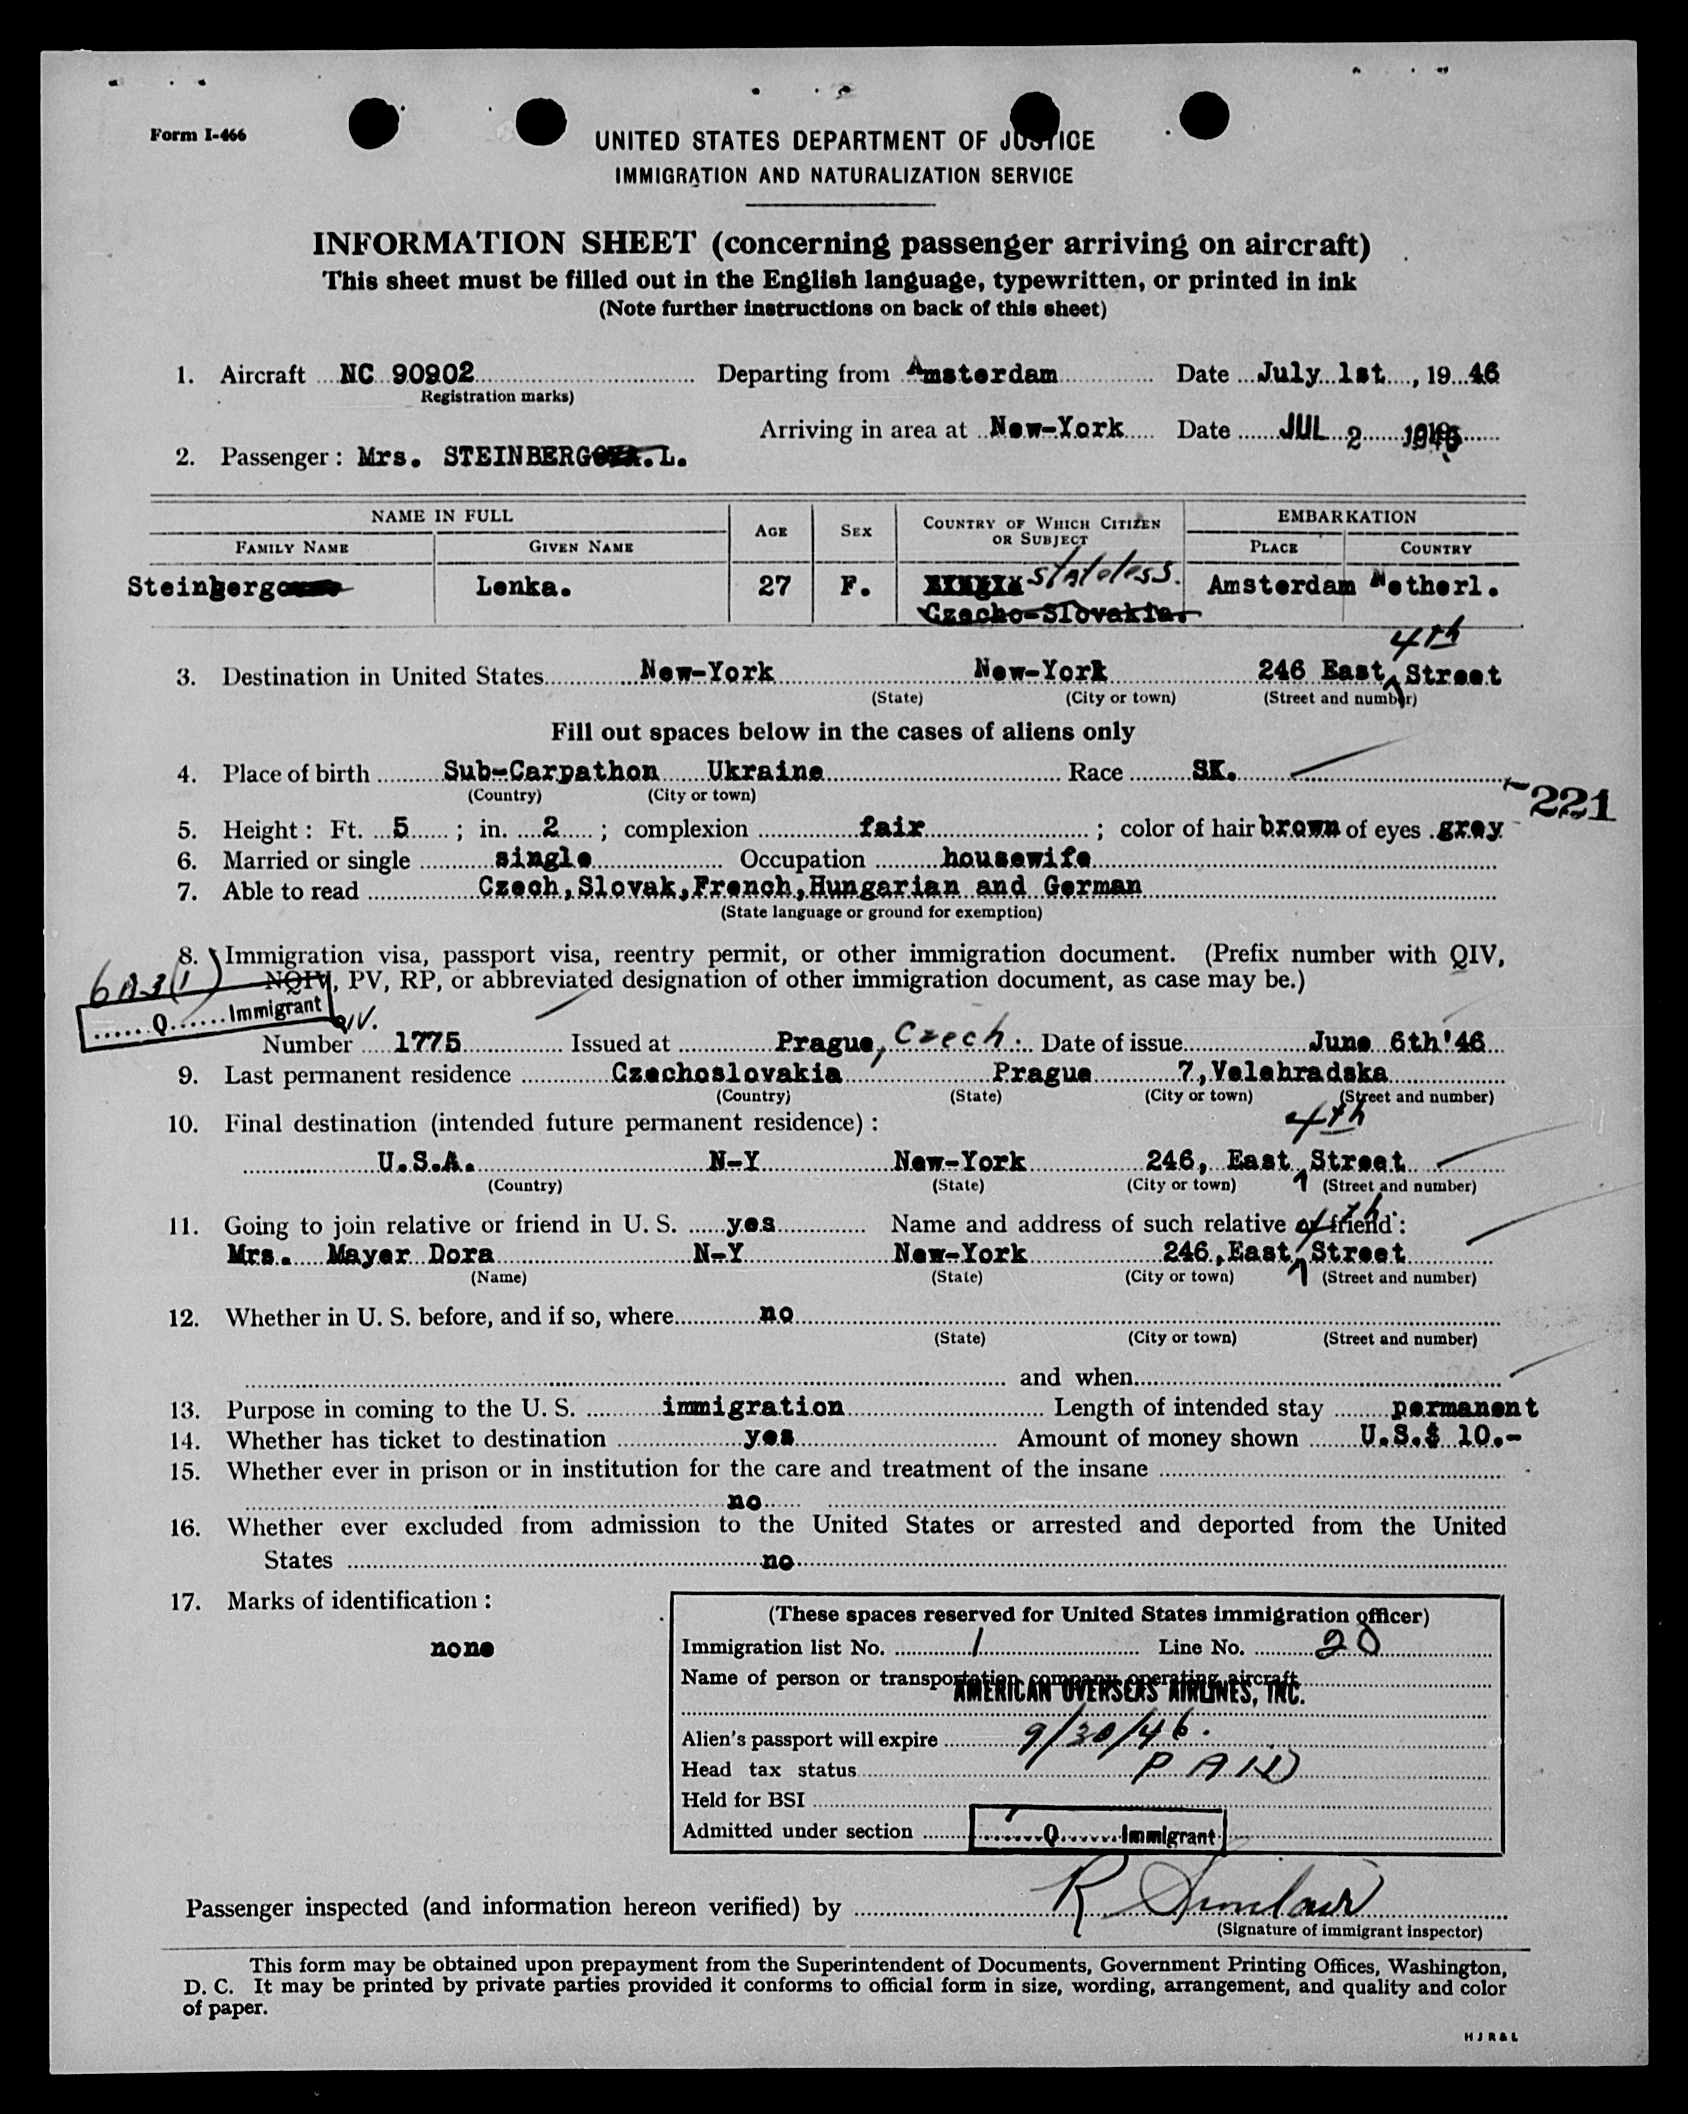 Form I-466
UNITED STATES DEPARTMENT OF JUSTICE
IMMIGRATION AND NATURALIZATION SERVICE
INFORMATION SHEET (concerning passenger arriving on aircraft)
This sheet must be filled out in the English language, typewritten, or printed in ink
(Note further instructions on back of this sheet)
1. Aircraft NC 90902 Departing from Amsterdam Date July 1st, 1946
Registration marks)
Arriving in area at New-York Date JUL 2 1946
2. Passenger: Mrs. STEINBERG L.
NAME IN FULL AGE SEX COUNTRY OF WHICH CITIZEN OR SUBJECT EMBARKATION
FAMILY NAME GIVEN NAME PLACE COUNTRY
Steinberg Lenka. 27 F. stateless. Amsterdam Netherl.
Czecho-Slovakia.
4th
3. Destination in United States New-York New-York 246 East Street
(State) (City or town) (Street and number)
Fill out spaces below in the cases of aliens only
4. Place of birth Sub-Carpathon Ukraine Race SK.
(Country) (City or town)
221
5. Height: Ft. 5; in. 2; complexion fair; color of hair brown of eyes grey
6. Married or single single Occupation housewife
7. Able to read Czech, Slovak, French, Hungarian and German
(State language or ground for exemption)
8. Immigration visa, passport visa, reentry permit, or other immigration document. (Prefix number with QIV,
NQIV, PV, RP, or abbreviated designation of other immigration document, as case may be.)
Q Immigrant
QIV.
Number 1775 Issued at Prague, Czech. Date of issue June 6th'46
9. Last permanent residence Czechoslovakia Prague 7, Velehradska
(Country) (State) (City or town) (Street and number)
10. Final destination (intended future permanent residence): 4th
U.S.A. N-Y New-York 246, East Street
(Country) (State) (City or town) (Street and number)
11. Going to join relative or friend in U. S. yes Name and address of such relative or friend: 4th
Mrs. Mayer Dora N-Y New-York 246, East Street
(Name) (State) (City or town) (Street and number)
12. Whether in U. S. before, and if so, where no
(State) (City or town) (Street and number)
and when
13. Purpose in coming to the U. S. immigration Length of intended stay permanent
14. Whether has ticket to destination yes Amount of money shown U.S.$ 10.-
15. Whether ever in prison or in institution for the care and treatment of the insane
no
16. Whether ever excluded from admission to the United States or arrested and deported from the United
States no
17. Marks of identification:
none
(These spaces reserved for United States immigration officer)
Immigration list No. 1 Line No. 20
Name of person or transportation company operating aircraft
AMERICAN OVERSEAS AIRLINES, INC.
Alien's passport will expire 9/30/46.
Head tax status PAID
Held for BSI
Admitted under section Q Immigrant
Passenger inspected (and information hereon verified) by R Sinclair
(Signature of immigrant inspector)
This form may be obtained upon prepayment from the Superintendent of Documents, Government Printing Offices, Washington,
D. C. It may be printed by private parties provided it conforms to official form in size, wording, arrangement, and quality and color
of paper.
H J R & L